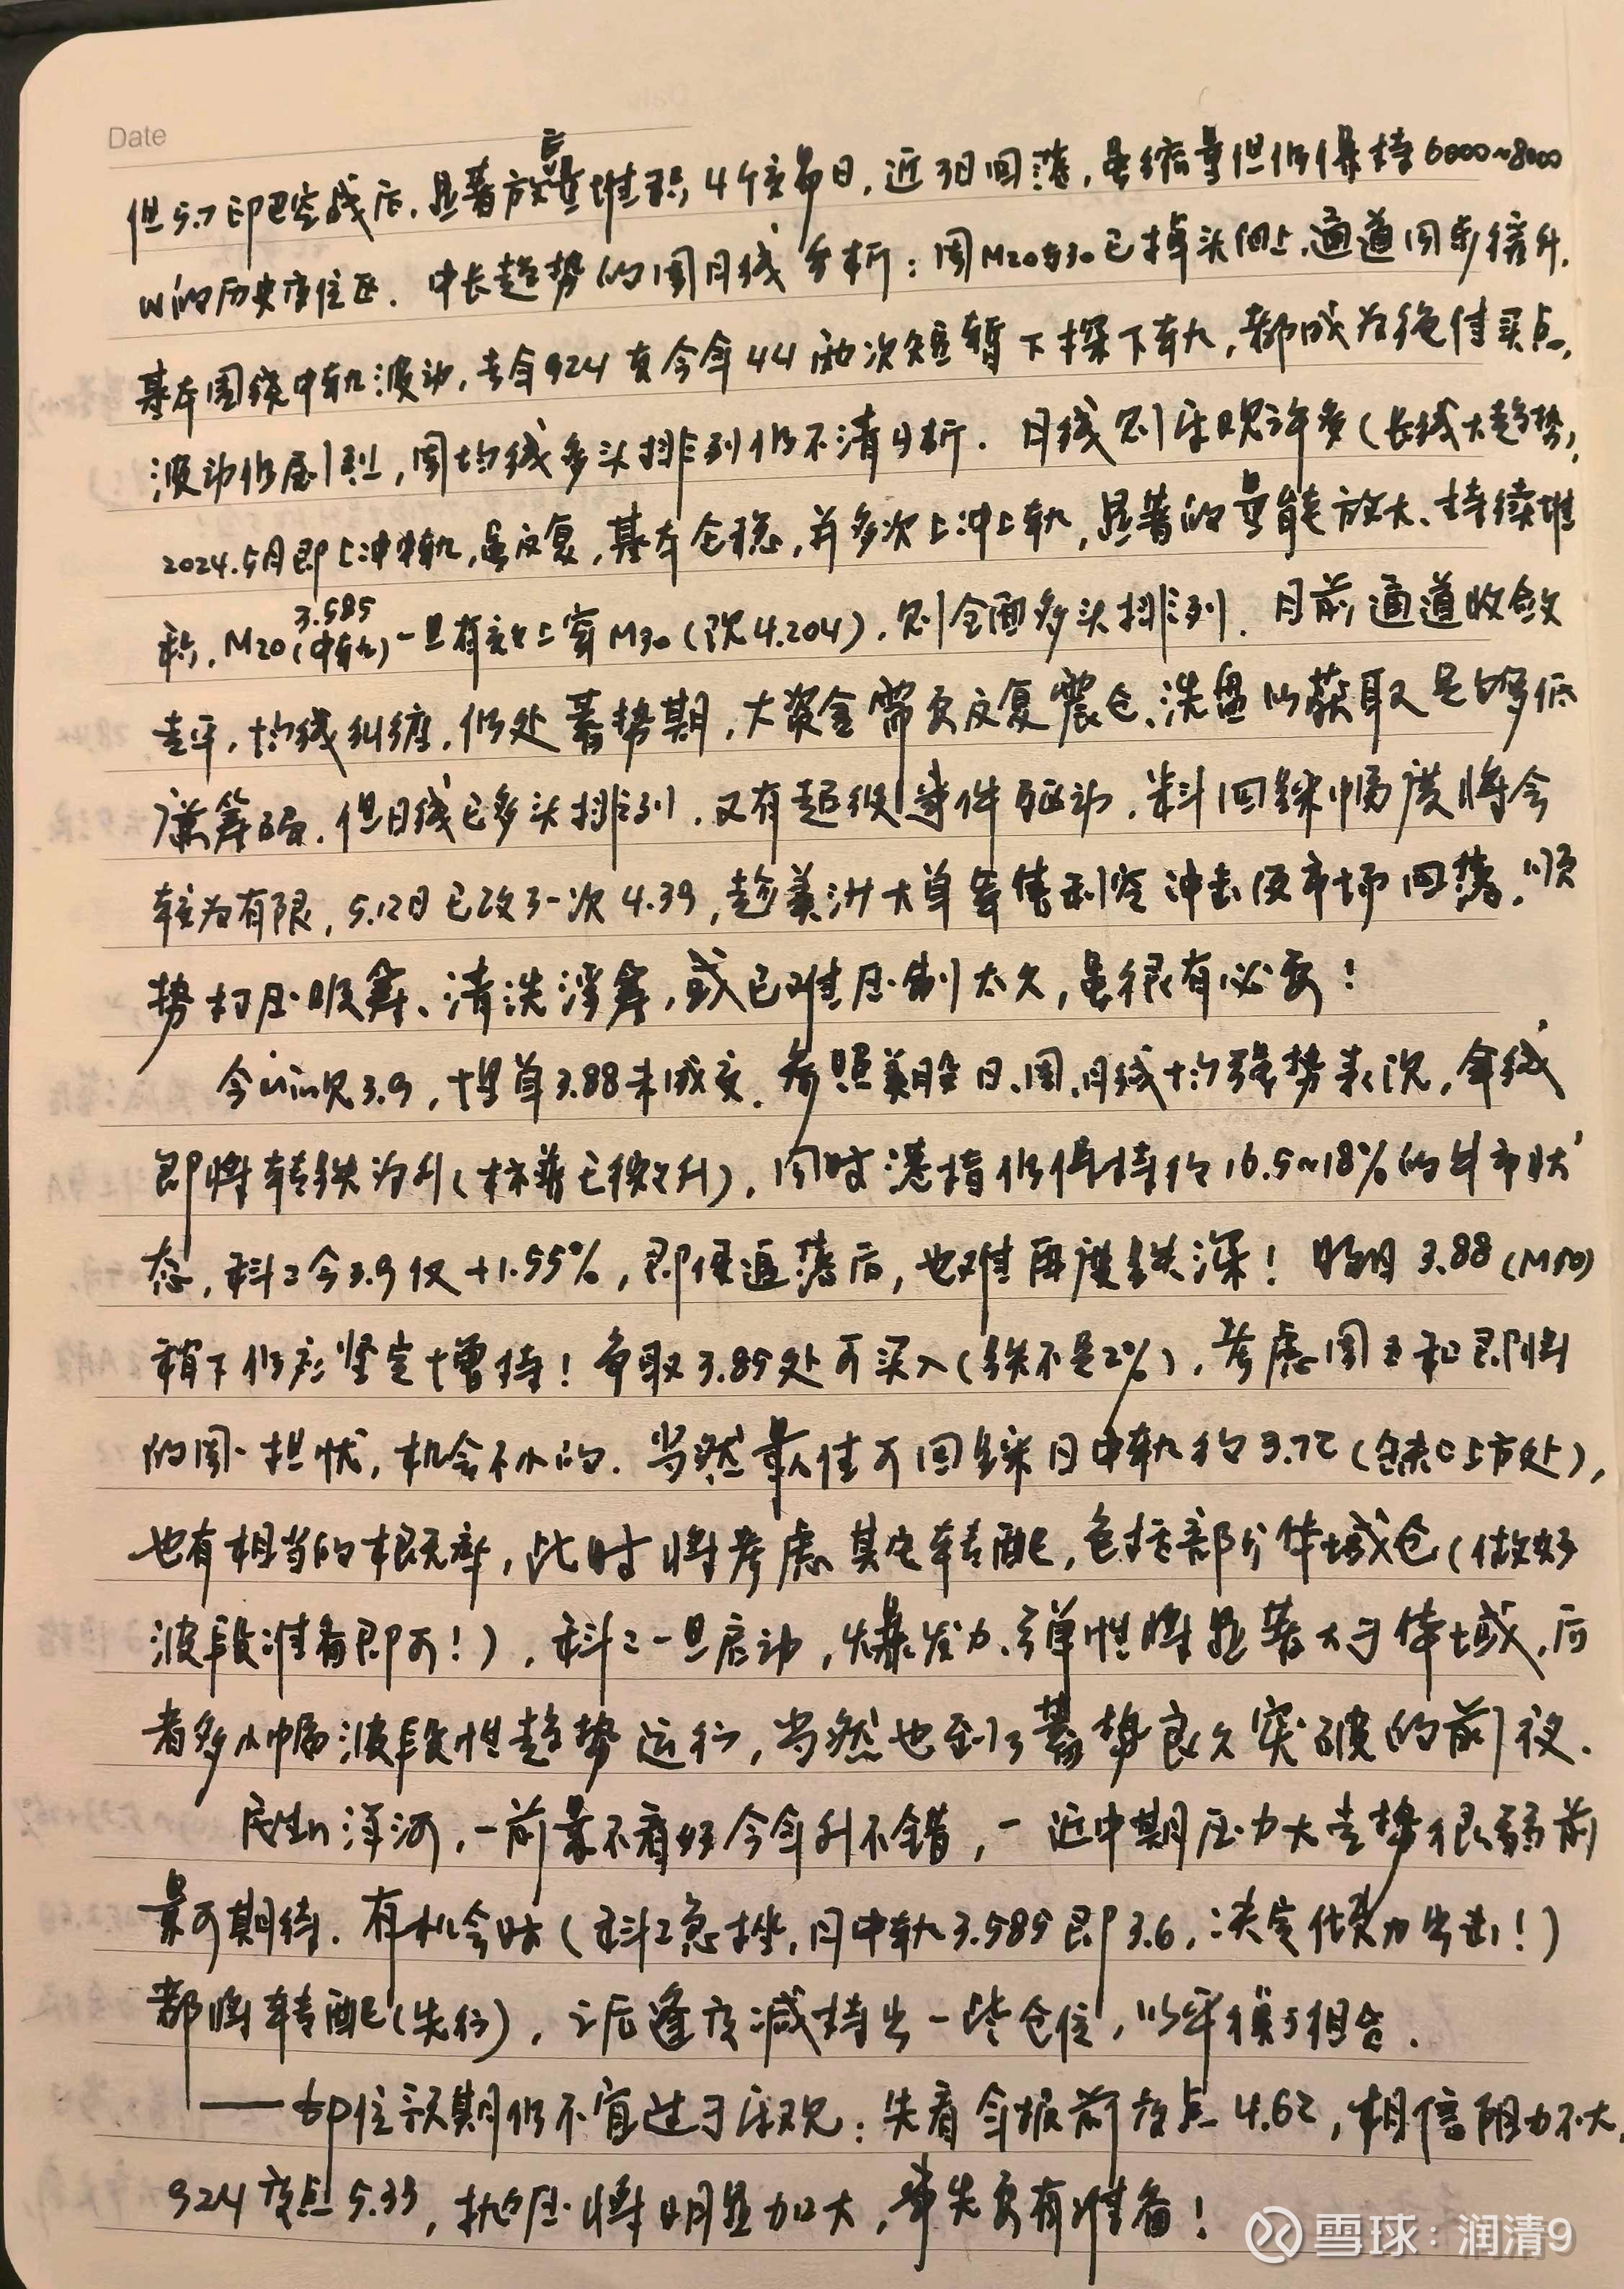 Date
但5.7印巴空战后，显著放量堆积4个交易日，近3日回落，虽缩量但仍保持6000~8000
W的历史高位区. 中长趋势的周月线分析：周M20与30已掉头向上，通道同步缓升，
基本围绕中轨波动，去年924及今年44两次短暂下探下轨，都成为绝佳买点，
波动仍剧烈，周均线多头排列仍不清晰. 月线则乐观许多（长线大趋势），
2024.5月即上冲中轨，虽反复，基本企稳，并多次上冲上轨，显著的量能放大、持续堆
积，M20（中轨）3.585一旦有效上穿M30（现4.204），则全面多头排列. 目前通道收敛
走平，均线纠缠，仍处蓄势期，大资金需要反复震仓、洗盘以获取足够低
廉筹码. 但日线已多头排列，又有超级事件驱动，料回踩幅度将会
较为有限，5.12日已攻了一次4.39，趁美洲大单军售利空冲击使市场回落，顺
势打压吸筹、清洗浮筹，或已难压制太久，虽很有必要！
今min见3.9，埋单3.88未成交. 参照美股日、周、月线均强势表现，年线
即将转跌为升（标普已微升），同时港指仍保持约16.5~18%的牛市状
态，科2今3.9仅+1.55%，即便退潮后，也难再度跌深！明日3.88（M10）
稍下仍应坚定增持！争取3.85处可买入（跌不足2%），考虑周五和即将
的周一担忧，机会不小的. 当然最佳可回踩日中轨约3.72（缺口上方处），
也有相当的概率，此时将考虑其它转配，包括部分体域仓（做好
波段准备即可！），科2一旦启动，爆发力、弹性将显著大于体域，后
者多小幅波段性趋势运行，当然也到了蓄势良久突破的前夜.
民生n洋河，一前景不看好今年升不错，一近中期压力大走势很弱前
景可期待. 有机会时（科2急挫，月中轨3.585即3.6，决定倾力出击！）
都将转配（先行），之后逢高减持出一些仓位，以纵横相合.
——但预期仍不宜过于乐观：先看年报前高点4.62，相信阻力不大，
924高点5.33，抛压将明显加大，事先要有准备！
雪球：润清9